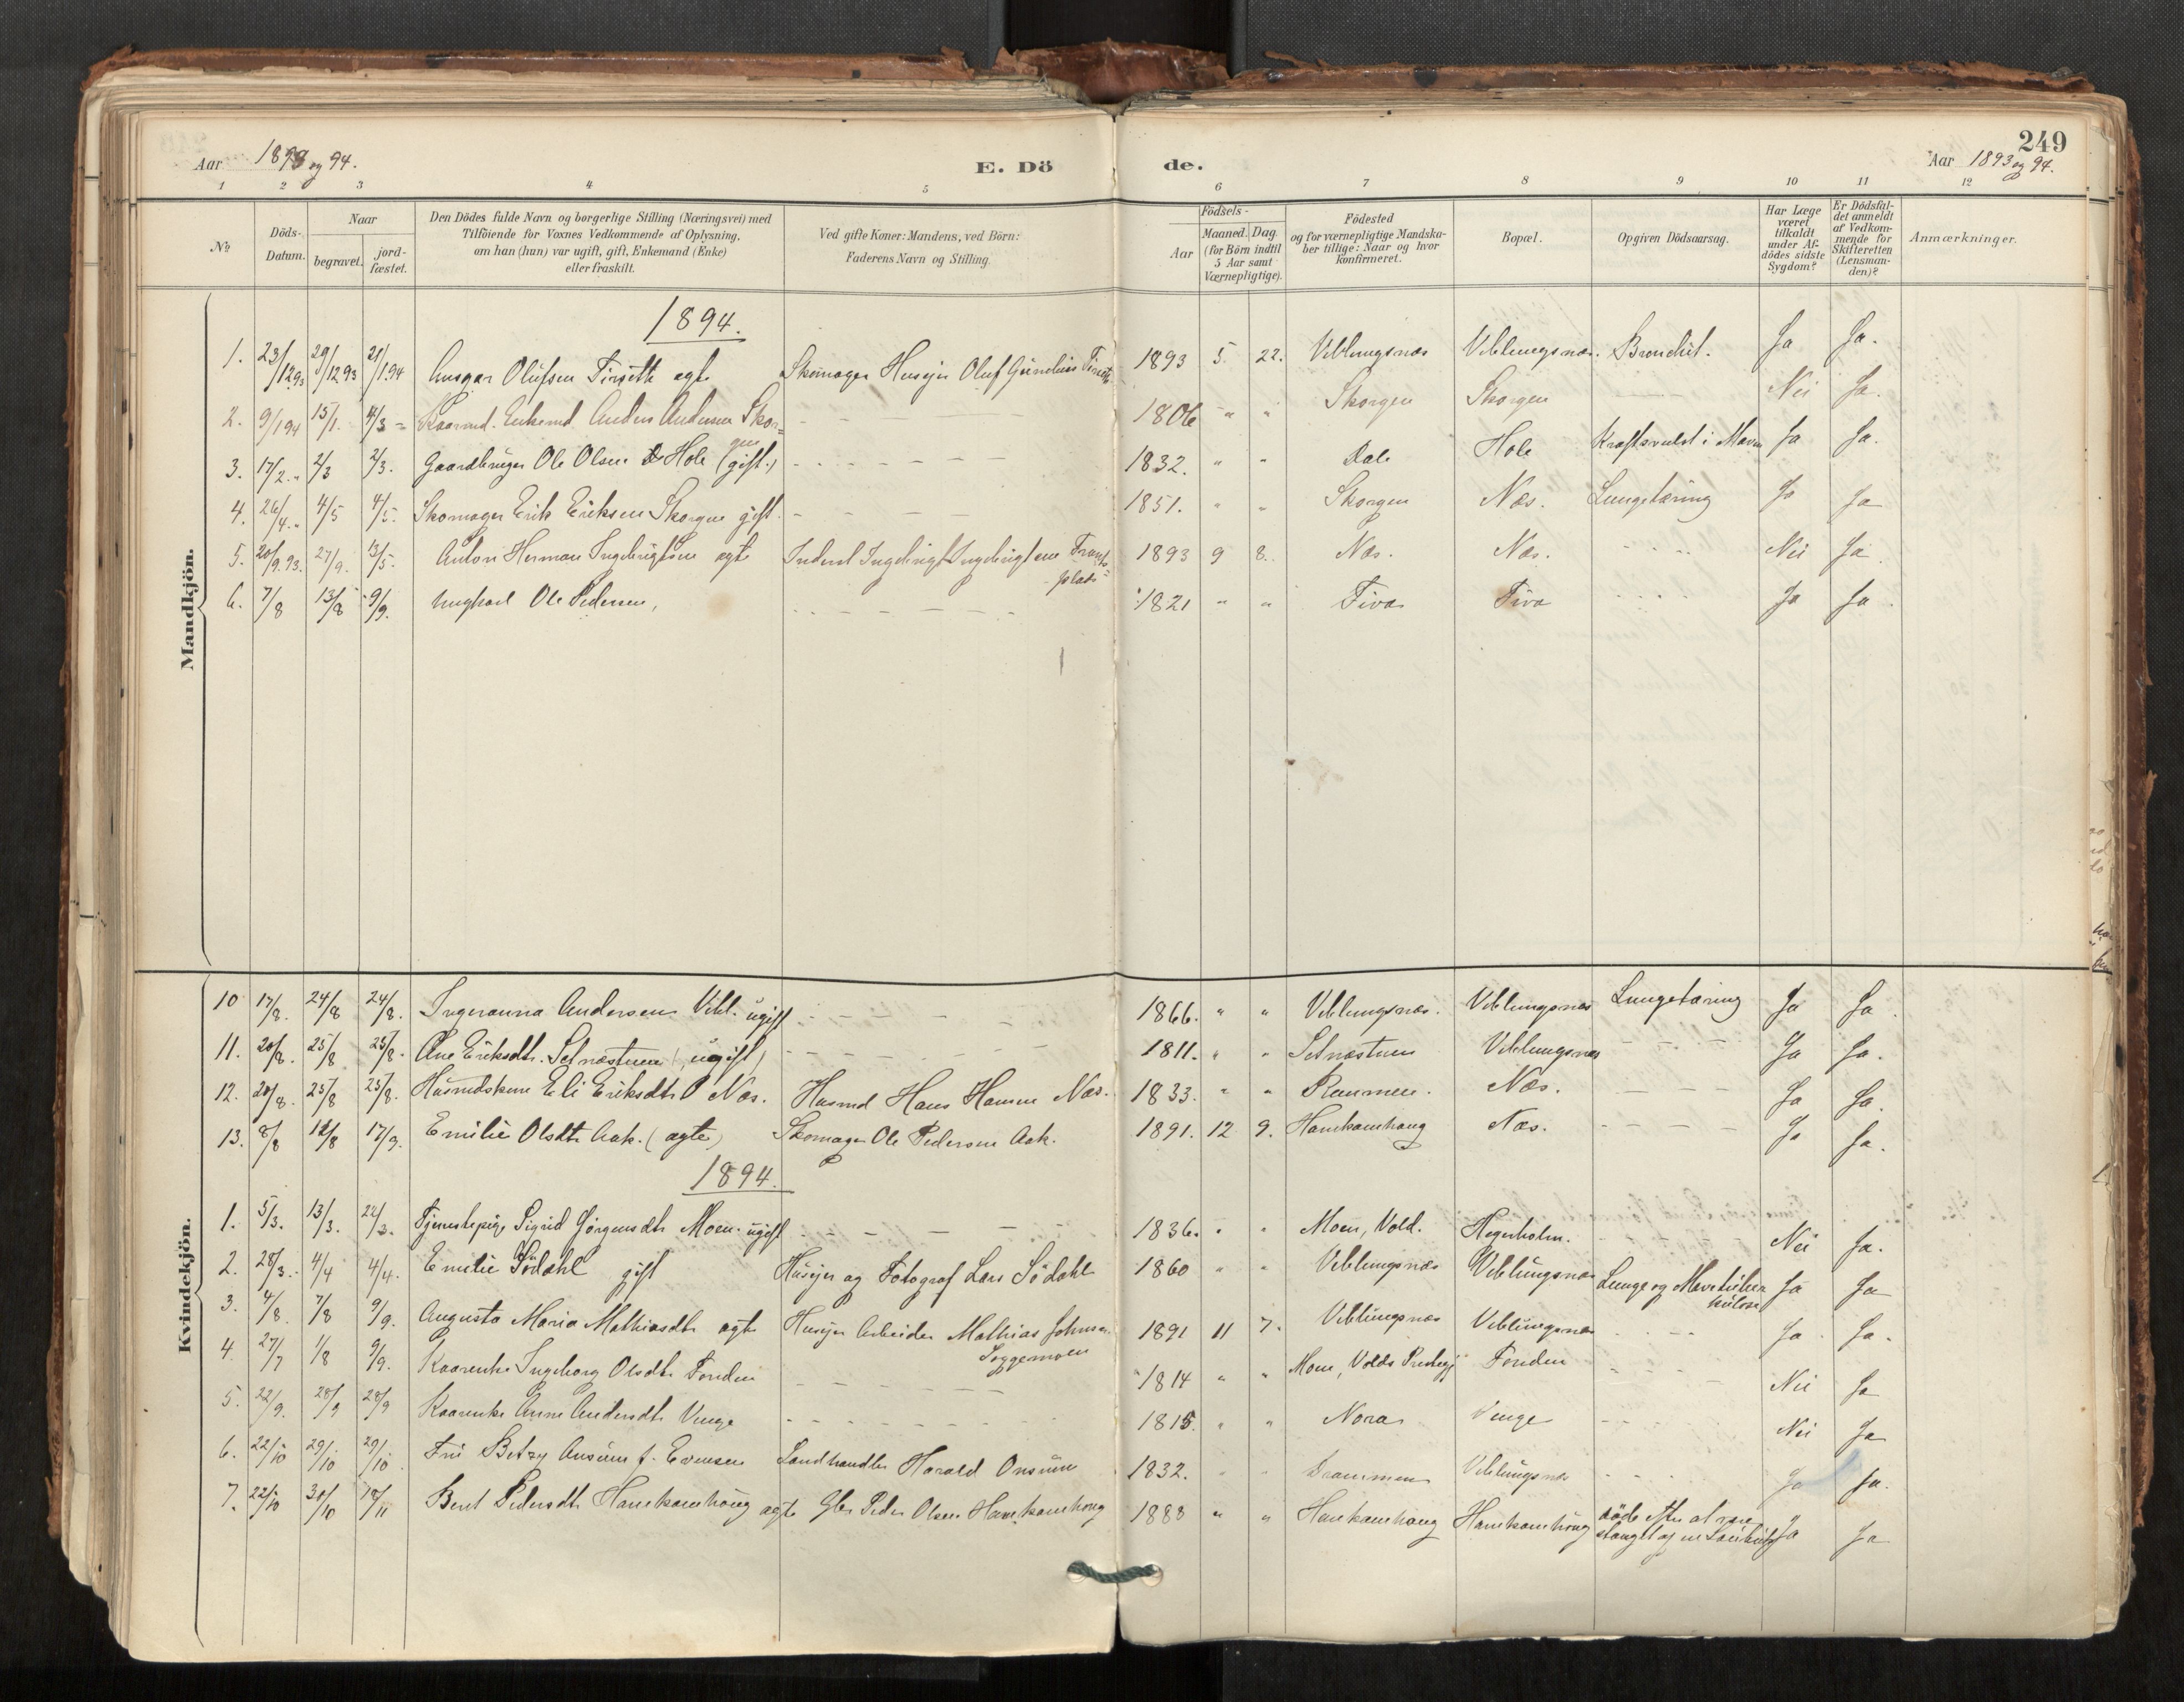 249
Aar 1893 og 94.
E. Dö
de.
Aar 1893 og 94.
1 2 3 4 5 6 7 8 9 10 11 12
№
Döds-Datum.
Naar
begravet.
jord-fæstet.
Den Dödes fulde Navn og borgerlige Stilling (Næringsvei) med
Tilföiende for Voxnes Vedkommende af Oplysning,
om han (hun) var ugift, gift, Enkemand (Enke)
eller fraskilt.
Ved gifte Koner: Mandens, ved Börn:
Faderens Navn og Stilling.
Födsels-
Aar
Maaned. Dag.
(for Börn indtil
5 Aar samt
Værnepligtige).
Födested
og for værnepligtige Mandska-
ber tillige: Naar og hvor
konfirmeret.
Bopæl.
Opgiven Dödsaarsag.
Har Læge
været
tilkaldt
under Af-
dödes sidste
Sygdom?
Er Dödsfal-
det anmeldt
af Vedkom-
mende for
Skifteretten
(Lensman-
den)?
Anmærkninger.
Mandkjön.
1894.
1. 23/12 93 29/12 93 21/1 94 Ansgar Olufsen Tirseth ægte Skomager Husejer Oluf Tirseth 1893 5 22. Veblungsnæs Veblungsnæs. Bronchit. Ja Ja.
2. 9/1 94 15/1. 4/3 Kaarmd. Enkemd. Anders Andersen Skor= - - 1806 " " Skorgen Skorgen Nei Ja.
gen
3. 17/2 " 2/3 2/3. Gaardbruger Ole Olsen Hole (gift.) - - - 1832. " " Dale Hole Kræftsvulst i Maven Ja Ja.
4. 26/4 " 4/5 4/5. Skomager Erik Eriksen Skorgen gift. - - - 1851. " " Skorgen Næs. Lungetæring Ja Ja
5. 20/9 93. 27/9. 13/5. Anton Herman Ingebrigtsen ægte Inderst Ingebrigt Ingebrigtsen 1893 9 8. Næs. Næs. - - - Nei Ja.
plads
6. 7/8 13/8 9/9. Ungkarl Ole Pedersen, - - - 1821 " " Tiva Tiva - - - Ja Ja.
Kvindekjön.
10 17/8. 24/8 24/8. Ingeranna Andersen Vebl. ugift - - - 1866. " " Veblungsnæs. Veblungsnæs Lungetæring Ja Ja
11. 20/8. 25/8 25/8. Ane Eriksdtr. Setnæstuen (ugift) - - - 1811. " " Setnæstuen Veblungsnæs - - - Ja Ja.
12. 20/8. 25/8 25/8. Husmdskone Eli Eriksdtr Næs. Husmd Hans Hansen Næs. 1833. " " Næs. - - - Ja Ja.
13. 8/8 12/8 17/9. Emilie Olsdtr Aak. (ægte) Skomager Ole Pedersen Aak. 1891. 12 9. Hamkamhaug Næs. - - - Ja Ja.
1894.
1. 5/3. 13/3. 22/3. Tjenestepige Sigrid Jörgensdtr Moen. ugift - - - 1836. " " Moen, Vold. Hegerholm. - - - Nei Ja.
2. 28/3. 4/4 4/4. Emilie Södahl gift Husejer og Fotograf Lars Södahl 1860 " " Veblungsnæs Veblungsnæs Lunge og Mavetuber
kulose Ja Ja
3. 4/8. 7/8 9/9. Augusta Maria Mathiasdtr ægte Husejer Arbeider Mathias Johnsen 1891 11 7. Veblungsnæs Veblungsnæs - - - Ja. Ja.
Soggemoen
4. 27/7 1/8 9/9. Kaarenke Ingeborg Olsdtr Fonden - - - 1814 " " Moen, Volds Prestegj Fonden - - - Nei Ja
5. 22/9. 28/9 28/9 Kaarenke Anne Andersdtr Venge - - - 1815. " " Nora Venge - - - Nei Ja
6. 22/10 29/10 29/10. Fru Betzy Onsum f. Evensen Landhandler Harald Onsum 1832. " " Drammen Veblungsnæs - - - Ja Ja.
7. 22/10 30/10 18/11 Berit Pedersdtr Hamkamhaug ægte Gbr. Peder Olsen Hamkamhaug 1883 " " Hamkamhaug Hamkamhaug döde efter at være
stanget af en Ja Ja